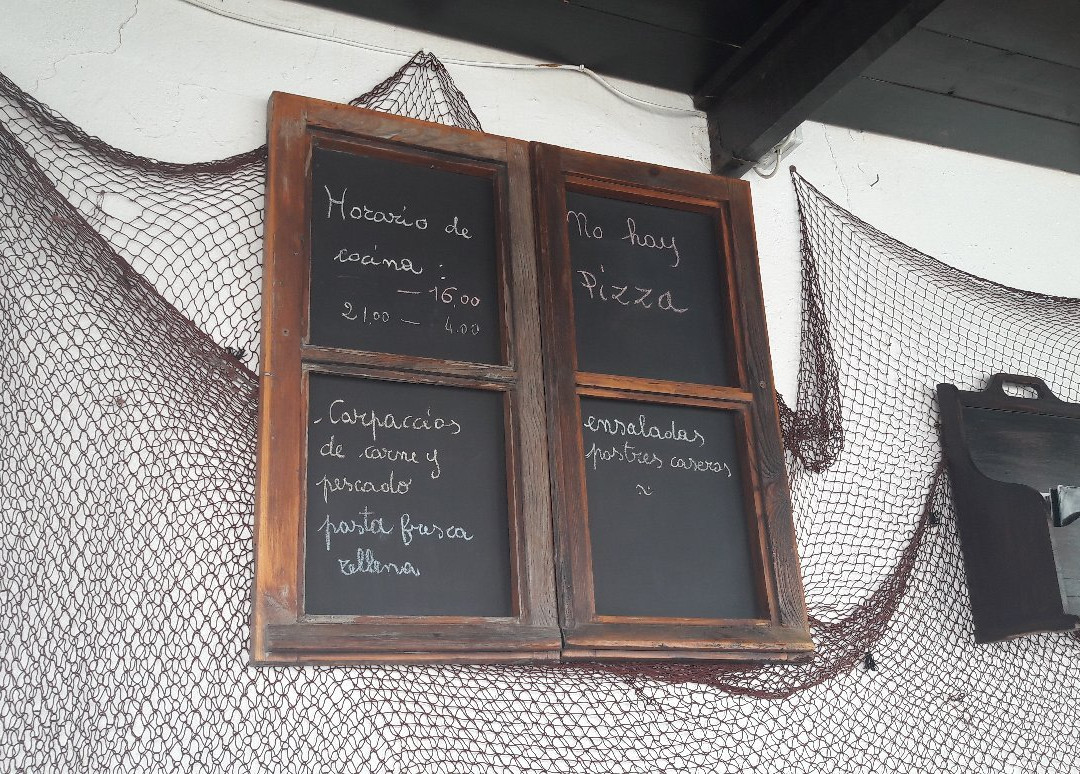 Horario de
cocina :
— 16,00
21,00 — 4.00
No hay
Pizza
Carpaccios
de carne y
pescado
pasta fresca
rellena
ensaladas
postres caseros